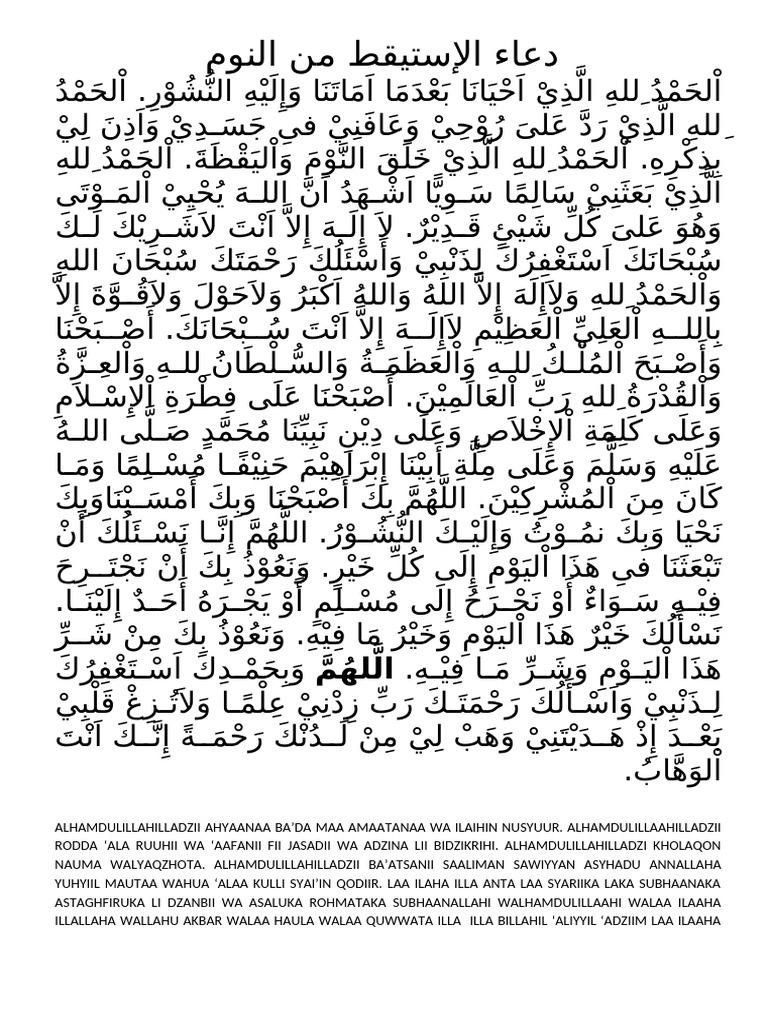 دعاء الإستيقط من النوم
اْلحَمْدُ ِللهِ الَّذِيْ اَحْيَانَا بَعْدَمَا اَمَاتَنَا وَإِلَيْهِ النُّشُوْرِ. اْلحَمْدُ
ِللهِ الَّذِيْ رَدَّ عَلىَ رُوْحِيْ وَعَافَنِيْ فىِ جَسَـدِيْ وَاَذِنَ لِيْ
بِذِكْرِهِ. اْلحَمْدُ ِللهِ الَّذِيْ خَلَقَ النَّوْمَ وَاْليَقْظَةَ. اْلحَمْدُ ِللهِ
الَّذِيْ بَعَثَنِيْ سَالِمًا سَـوِيًّا اَشْـهَدُ اَنَّ اللـهَ يُحْيِيْ اْلمَـوْتَى
وَهُوَ عَلىَ كُلِّ شَيْئٍ قَـدِيْرٌ. لاَ إِلَـهَ إِلاَّ اَنْتَ لاَشَـرِيْكَ لَـكَ
سُبْحَانَكَ اَسْتَغْفِرُكَ لِذَنْبِيْ وَأَسْئَلُكَ رَحْمَتَكَ سُبْحَانَ اللهِ
وَاْلحَمْدُ ِللهِ وَلاَإِلَهَ إِلاَّ اللهُ وَاللهُ اَكْبَرُ وَلاَحَوْلَ وَلاَقُــوَّةَ إِلاَّ
بِاللـــهِ اْلعَلِيِّ اْلعَظِيْمِ لاَإِلَــهَ إِلاَّ اَنْتَ سُــبْحَانَكَ. أَصْــبَحْنَا
وَأَصْـبَحَ اْلمُلْـكُ ِللـهِ وَاْلعَظَمَـةُ وَالسُّـلْطَانُ ِللـهِ وَاْلعِـزَّةُ
وَاْلقُدْرَةُ ِللهِ رَبِّ اْلعَالَمِيْنَ. أَصْبَحْنَا عَلَى فِطْرَةِ اْلإِسْـلاَمِ
وَعَلَى كَلِمَةِ اْلإِخْلاَصِ وَعَلَى دِيْنِ نَبِيِّنَا مُحَمَّدٍ صَـلَّى اللـهُ
عَلَيْهِ وَسَلَّمَ وَعَلَى مِلَّةِ أَبِيْنَا إِبْرَاهِيْمَ حَنِيْفًـا مُسْـلِمًا وَمَـا
كَانَ مِنَ اْلمُشْرِكِيْنَ. اللَّهُمَّ بِكَ أَصْبَحْنَا وَبِكَ أَمْسَـيْنَاوَبِكَ
نَحْيَا وَبِكَ نمُـوْتُ وَإِلَيْـكَ النُّشُـوْرُ. اللَّهُمَّ إِنَّـا نَسْـئَلُكَ أَنْ
تَبْعَثَنَا فىِ هَذَا اْليَوْمِ إِلَى كُلِّ خَيْرٍ. وَنَعُوْذُ بِكَ أَنْ نَجْتَــرِحَ
فِيْـهِ سَـوَاءٌ أَوْ نَجْـرَحُ إِلَى مُسْـلِمٍ أَوْ يَجْـرَهُ أَحَـدٌ إِلَيْنَـا.
نَسْأَلُكَ خَيْرٌ هَذَا اْليَوْمِ وَخَيْرُ مَا فِيْهِ. وَنَعُوْذُ بِكَ مِنْ شَــرِّ
هَذَا اْليَـوْمِ وَشَـرِّ مَـا فِيْـهِ. الَّلهُمَّ وَبِحَمْـدِكَ اَسْـتَغْفِرُكَ
لِـذَنْبِيْ وَاَسْـأَلُكَ رَحْمَتَـكَ رَبِّ زِدْنِيْ عِلْمًـا وَلاَتُـزِغْ قَلْبِيْ
بَعْــدَ إِذْ هَــدَيْتَنِيْ وَهَبْ لِيْ مِنْ لَــدُنْكَ رَحْمَــةً إِنَّــكَ اَنْتَ
اْلوَهَّابُ.
ALHAMDULILLAHILLADZII AHYAANAA BA’DA MAA AMAATANAA WA ILAIHIN NUSYUUR. ALHAMDULILLAAHILLADZII
RODDA ‘ALA RUUHII WA ‘AAFANII FII JASADII WA ADZINA LII BIDZIKRIHI. ALHAMDULILLAHILLADZI KHOLAQON
NAUMA WALYAQZHOTA. ALHAMDULILLAHILLADZII BA’ATSANII SAALIMAN SAWIYYAN ASYHADU ANNALLAHA
YUHYIIL MAUTAA WAHUA ‘ALAA KULLI SYAI’IN QODIIR. LAA ILAHA ILLA ANTA LAA SYARIIKA LAKA SUBHAANAKA
ASTAGHFIRUKA LI DZANBII WA ASALUKA ROHMATAKA SUBHAANALLAHI WALHAMDULILLAAHI WALAA ILAAHA
ILLALLAHA WALLAHU AKBAR WALAA HAULA WALAA QUWWATA ILLA  ILLA BILLAHIL ‘ALIYYIL ‘ADZIIM LAA ILAAHA